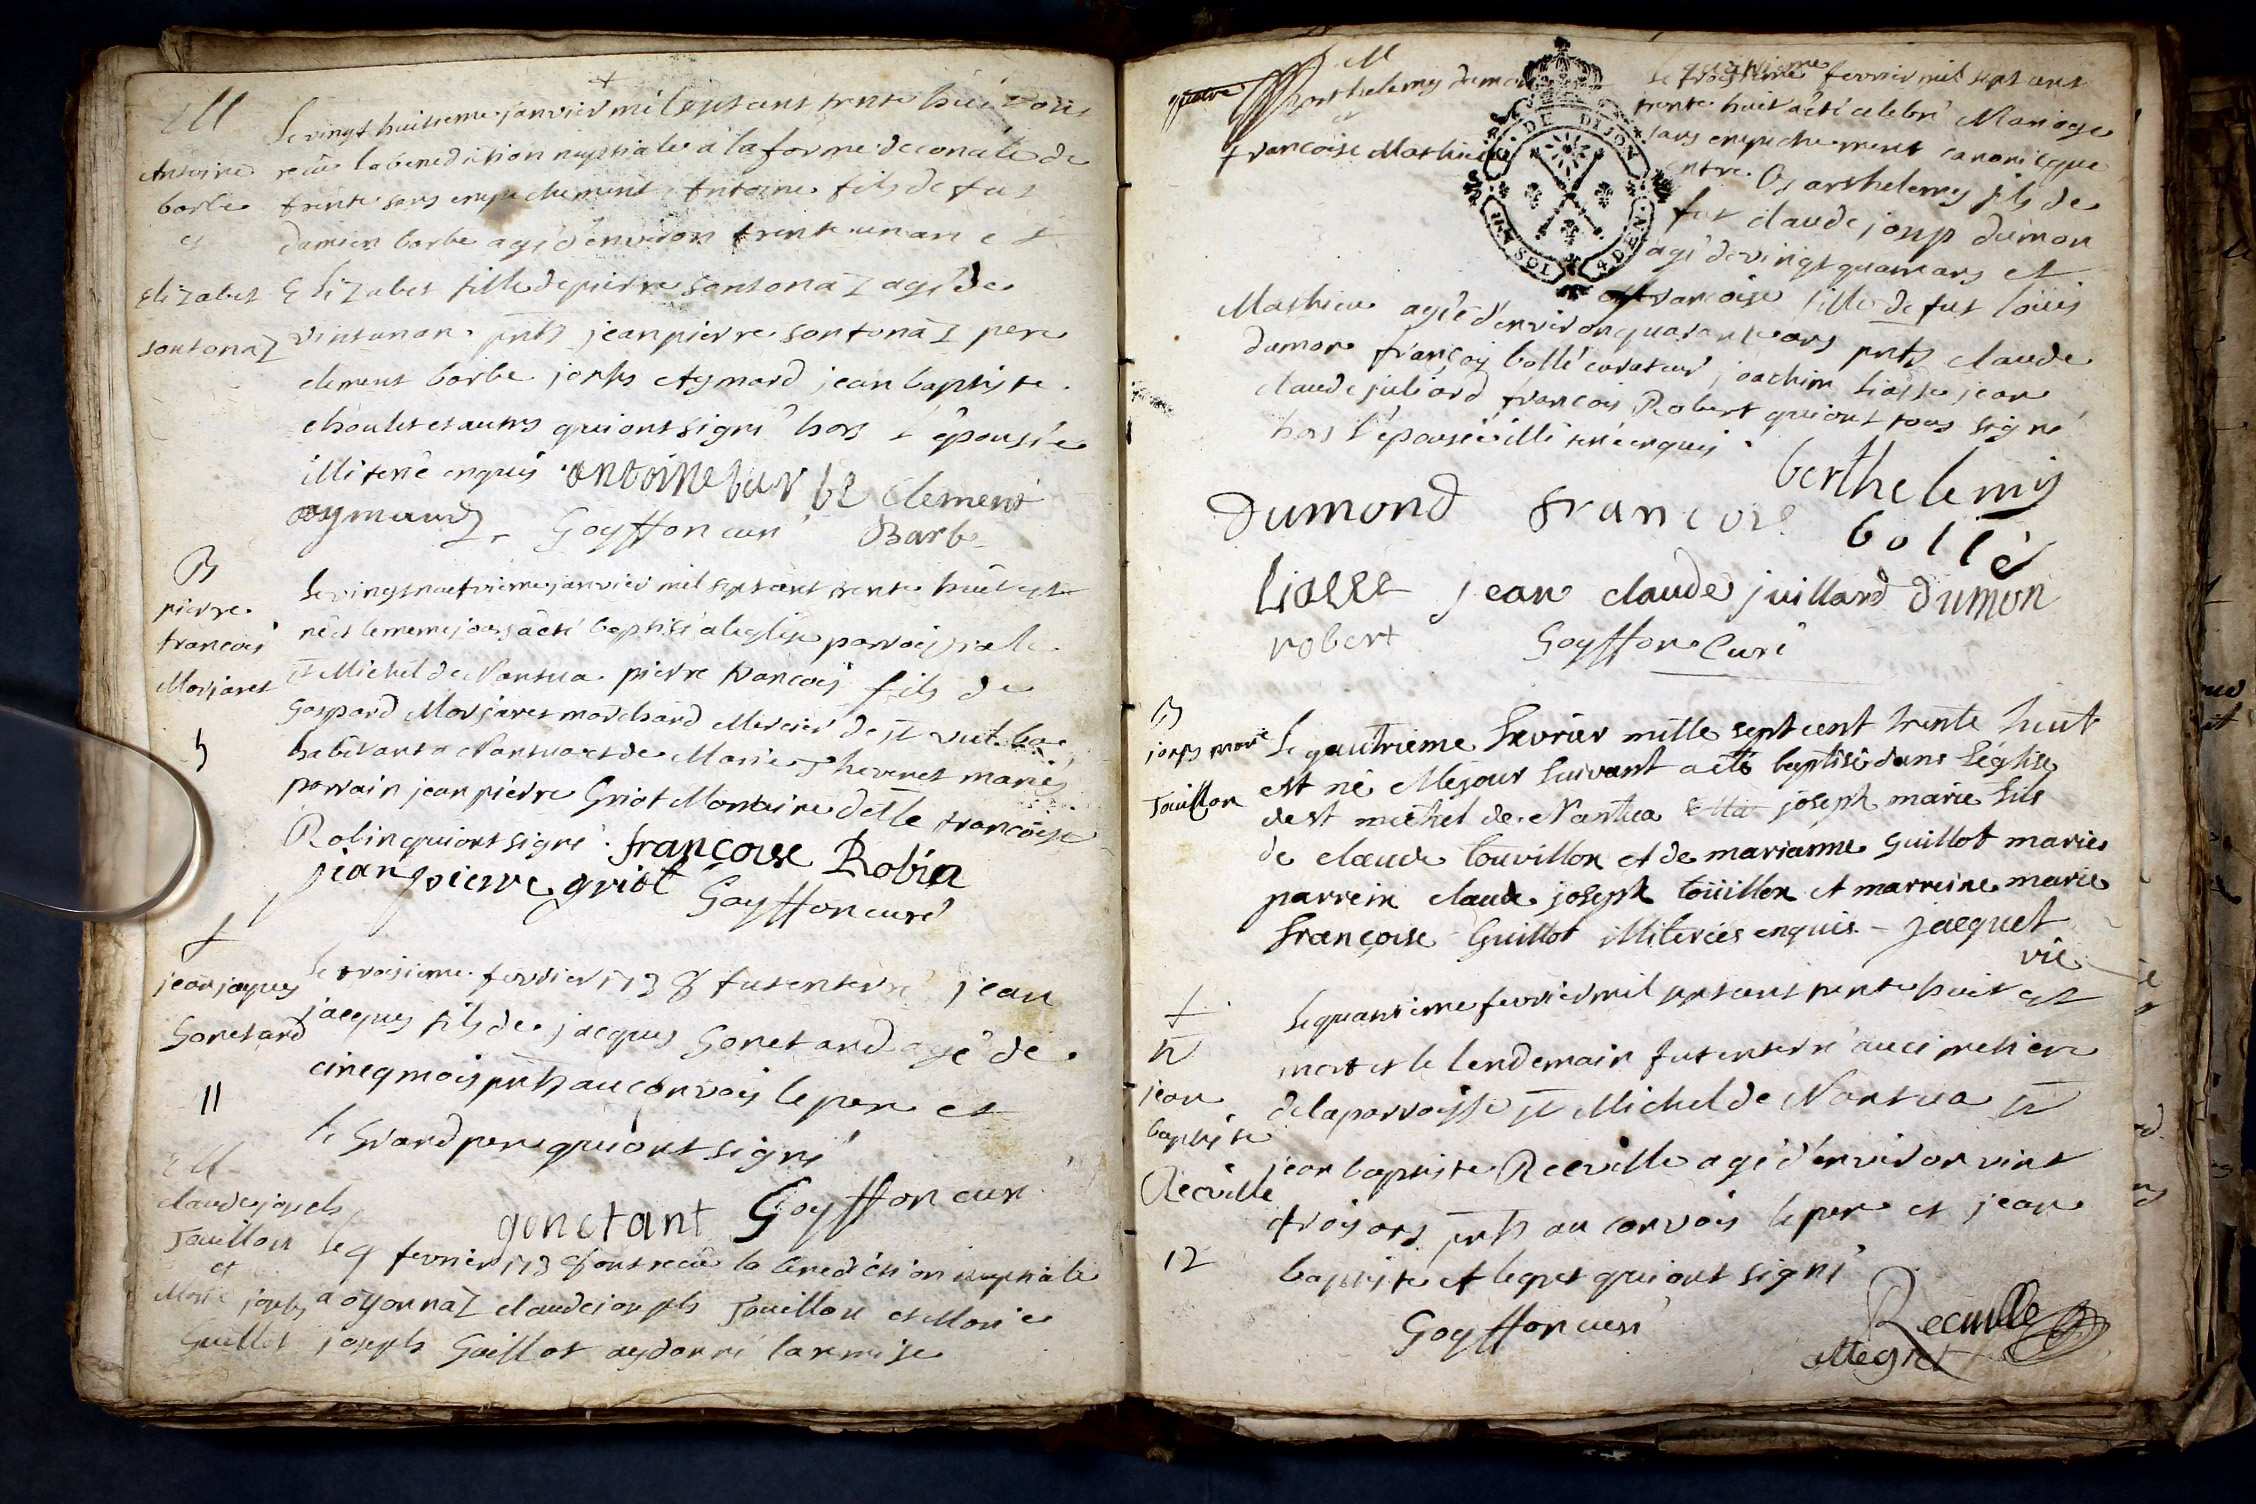 M
Antoine
barbe
et
Elizabet
sontonaz
Le vingt huitieme janvier mil sept cent trente huit ont
recu la benediction nuptiale a la forme du concile de
trente sans empechement Antoine fils de fut
damien barbe agé d'environ trente un an et
Elizabet fille de pierre sontonaz agé de
vint un an. pnts jean pierre sontonaz pere
clement barbe josephs Aymard jean baptiste
choulet et autres qui ont signé hors l'épousée
illiterée enquis. antoine barbe clement
aymard Goyffon curé Barbe
B
pierre
francois
Morjaret
5
Le vingt neufvieme janvier mil sept cent trente huit est
né et le meme jour a eté baptisé a leglise parroissiale
st Michel de Nantua pierre francois fils de
Gaspard Morjaret marchand Mercier de st
habitant a Nantua et de Marie Thevenet mariés
parrain jean pierre Griot Marraine delle francoise
Robin qui ont signé. françoise Robin
jean pierre griot Goyffon curé
†
jean jaques
Gonetand
11
Le troisieme fevrier 1738 fut enterré jean
jacques fils de jacques Gonetand agé de
cinq mois pnts au convois le pere et
le Grand pere qui ont signé
gonetant Goyffon curé
M
claude joseph
Touillon
et
Marie josephs
Guillot
le 4 fevrier 1738 ont recu la benediction nuptiale
a oyonnaz claude josephs Touillon et Marie
josephs Guillot ay donné la remise
quatre
M
Barthelemy dumon
et
francoise Mathieu
G. DE DIJON
UN SOL 4 DEN.
Le quatrieme fevrier mil sept cent
trente huit a eté celebré Mariage
sans empechement canonicque
entre Barthelemy fils de
fut claude joseph dumon
agé de vingt quatre ans et
francoise fille de fut loüis
Mathieu agée d'environ quarante ans pnts claude
dumon françois bollé curateur joachim Liasse jean
claude juliard francois Robert qui ont tous signé
hors l'épousée illiterée enquis.
berthelemy
dumond francois bollé
Liasse jean claude juillard dumon
robert Goyffon Curé
B
josephs marie
Touillon
Le quatrieme fevrier mille sept cent trente huit
est né et le jour suivant a eté baptisé dans l'églize
de st michel de Nantua joseph marie fils
de claude touvillon et de marianne Guillot mariés
parrein claude joseph toüillon et marreine marie
françoise Guillot illiterées enquis - jacquet
vic
†
sr
jean
baptiste
Recville
12
Le quatrieme fevrier mil sept cent trente huit est
mort et le lendemain fut enterré au cimetiere
de la parroisse st Michel de Nantua sr
jean baptiste Recville agé d'environ vint
trois ans pnts au convois le pere et jean
baptiste allegret qui ont signé
Goyffon curé Recville
allegret